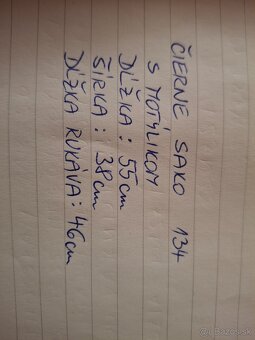 ČIERNE SAKO 134
S MOTÝLIKOM
DĹŽKA: 55cm
ŠÍRKA: 38cm
DĹŽKA RUKÁVA: 46cm